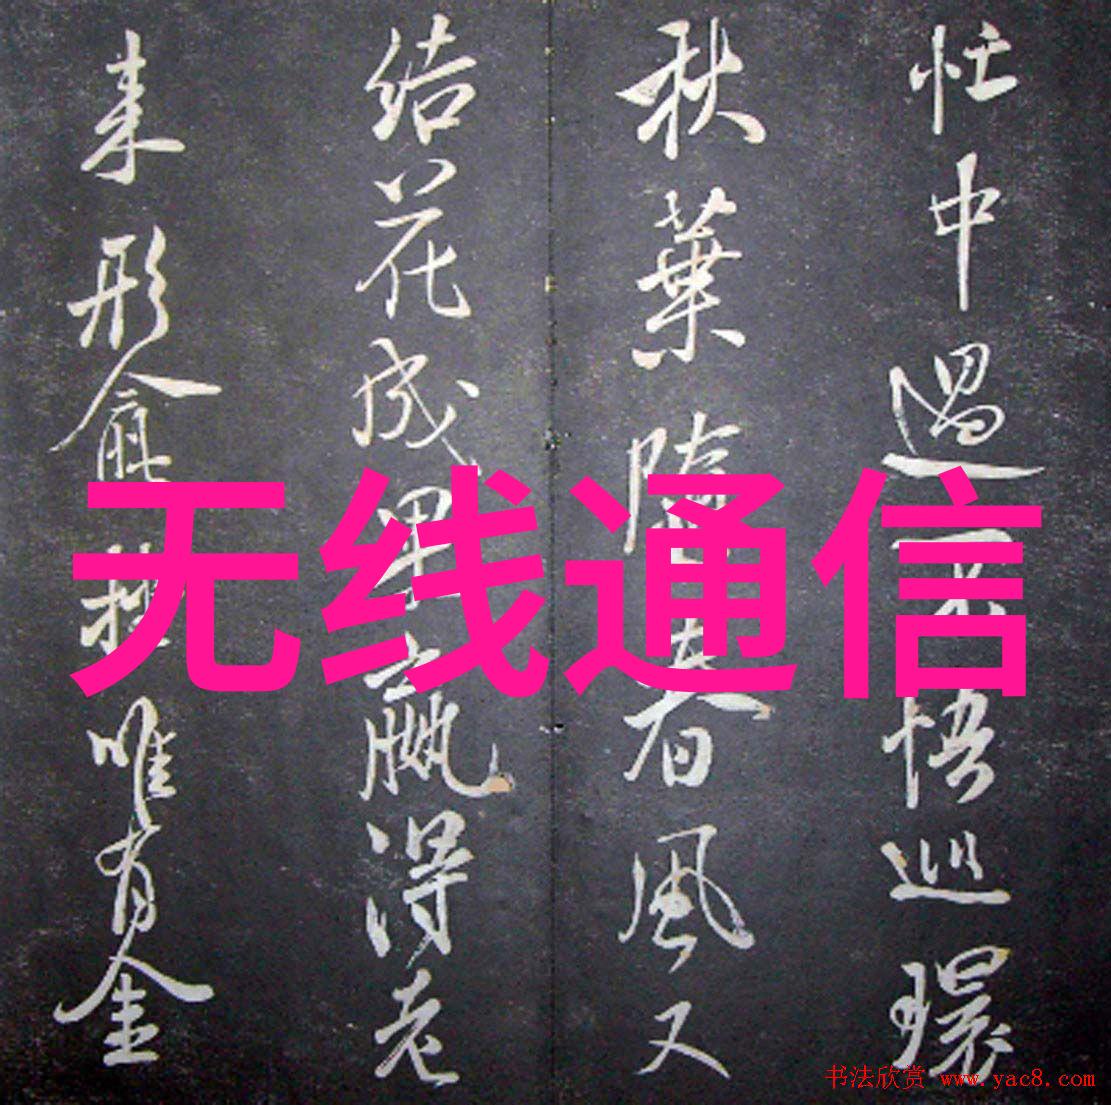 忙中遇不悟巡環
秋葉隨春風又
結花成果嬴得老
来形龕極唯有金
无线通信
书法欣赏 www.yac8.com